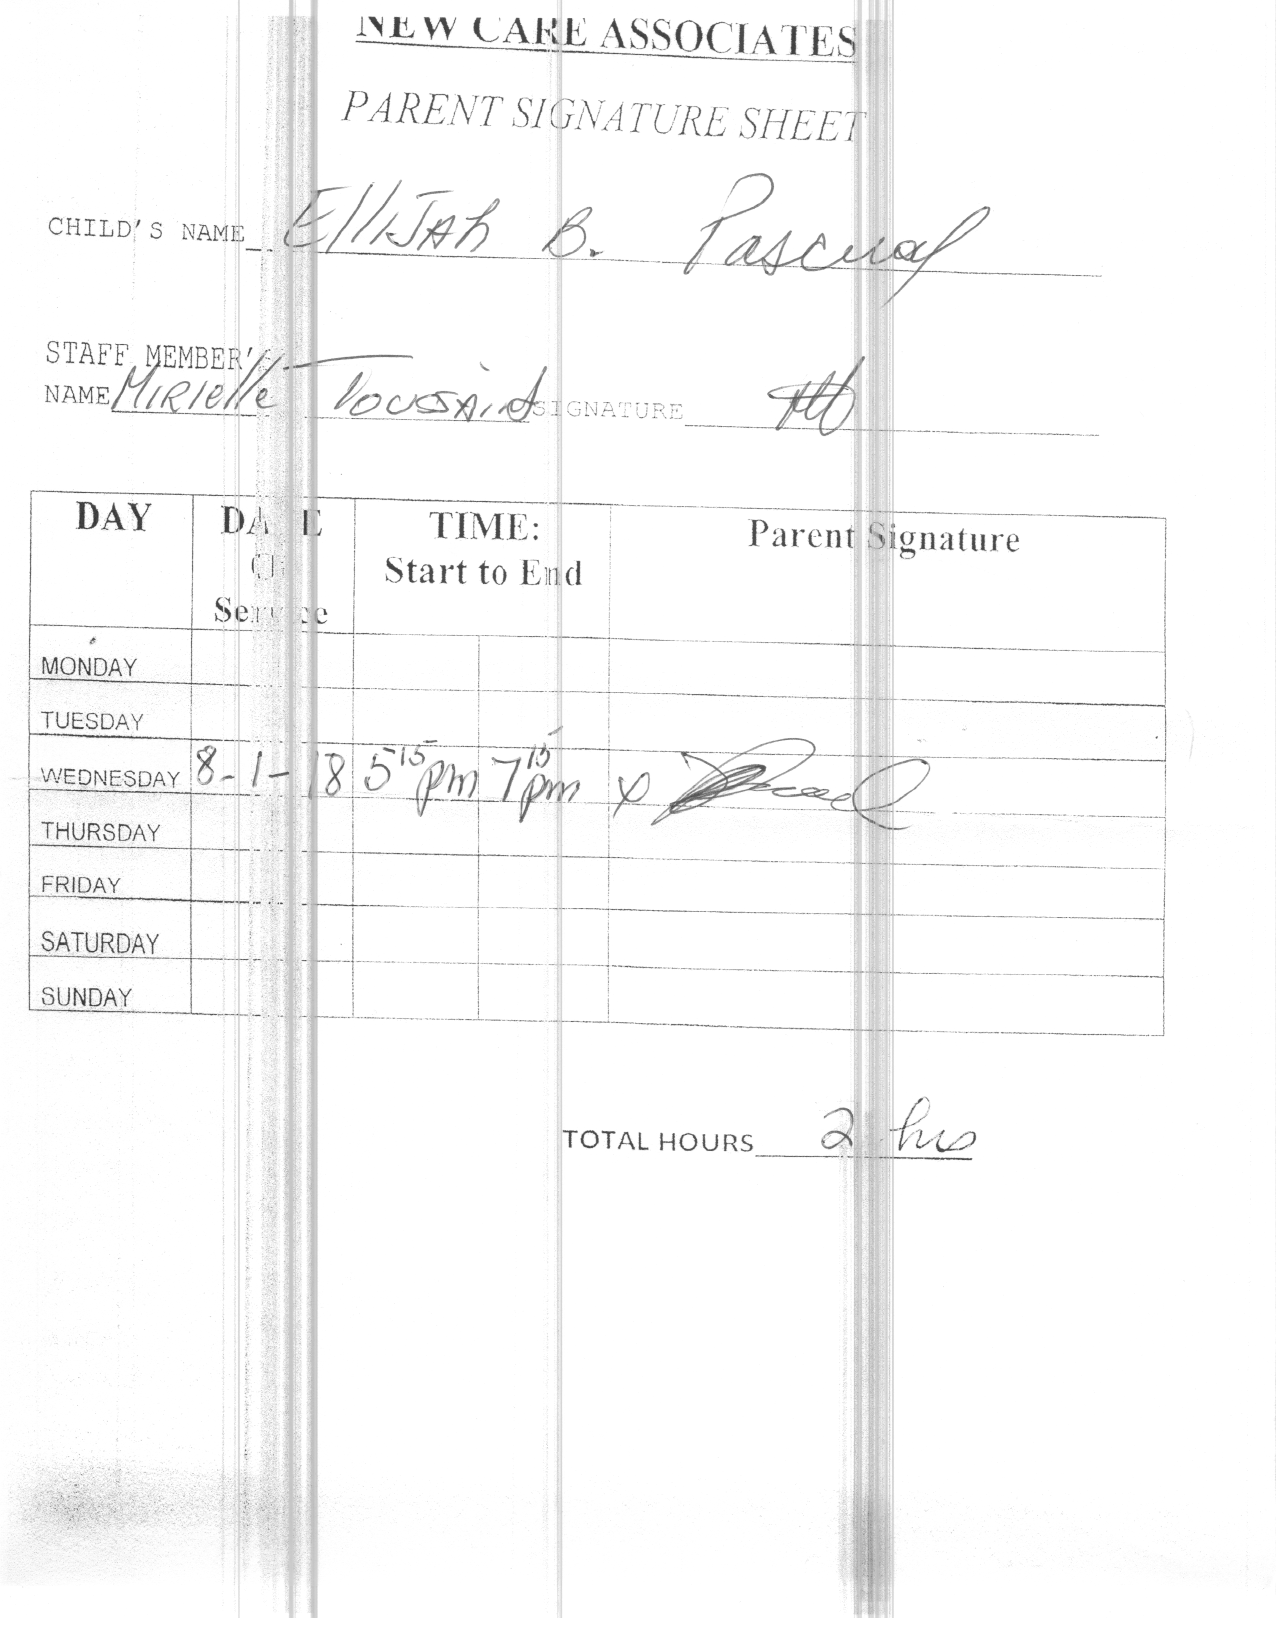 NEW CARE ASSOCIATES
PARENT SIGNATURE SHEET
CHILD'S NAME Ellijah B. Pascual
STAFF MEMBER'S
NAME Mirielle Toussaint SIGNATURE
DAY DATE Of Service TIME: Start to End Parent Signature
MONDAY
TUESDAY
WEDNESDAY 8-1-18 5 15 pm 7 15 pm x
THURSDAY
FRIDAY
SATURDAY
SUNDAY
TOTAL HOURS 2 hrs